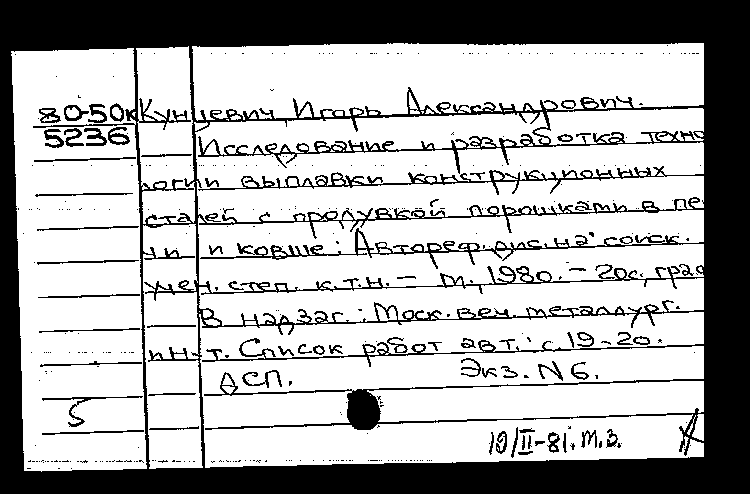 80-50к Кунцевич, Игорь Александрович.
5236 Исследование и разработка техно
логии выплавки конструкционных
сталей с продувкой порошками в пе
чи и ковше: Автореф. дис. на соиск.
учен. степ. к.т.н. - М., 1980. - 20с, граф
В надзаг.: Моск. веч. металлург.
ин-т. Список работ авт.: с. 19-20.
АСП. Экз. N 6.
5
19/II-81. т.з.